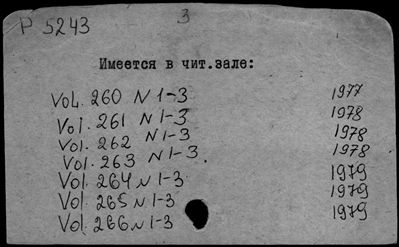 P 5243
3
Имеется в чит.зале:
Vol. 260 N 1-3 1977
Vol. 261 N 1-3 1978
Vol. 262 N 1-3 1978
Vol. 263 N 1-3. 1978
Vol. 264 N 1-3 1979
Vol. 265 N 1-3 1979
Vol. 266 N 1-3 1979